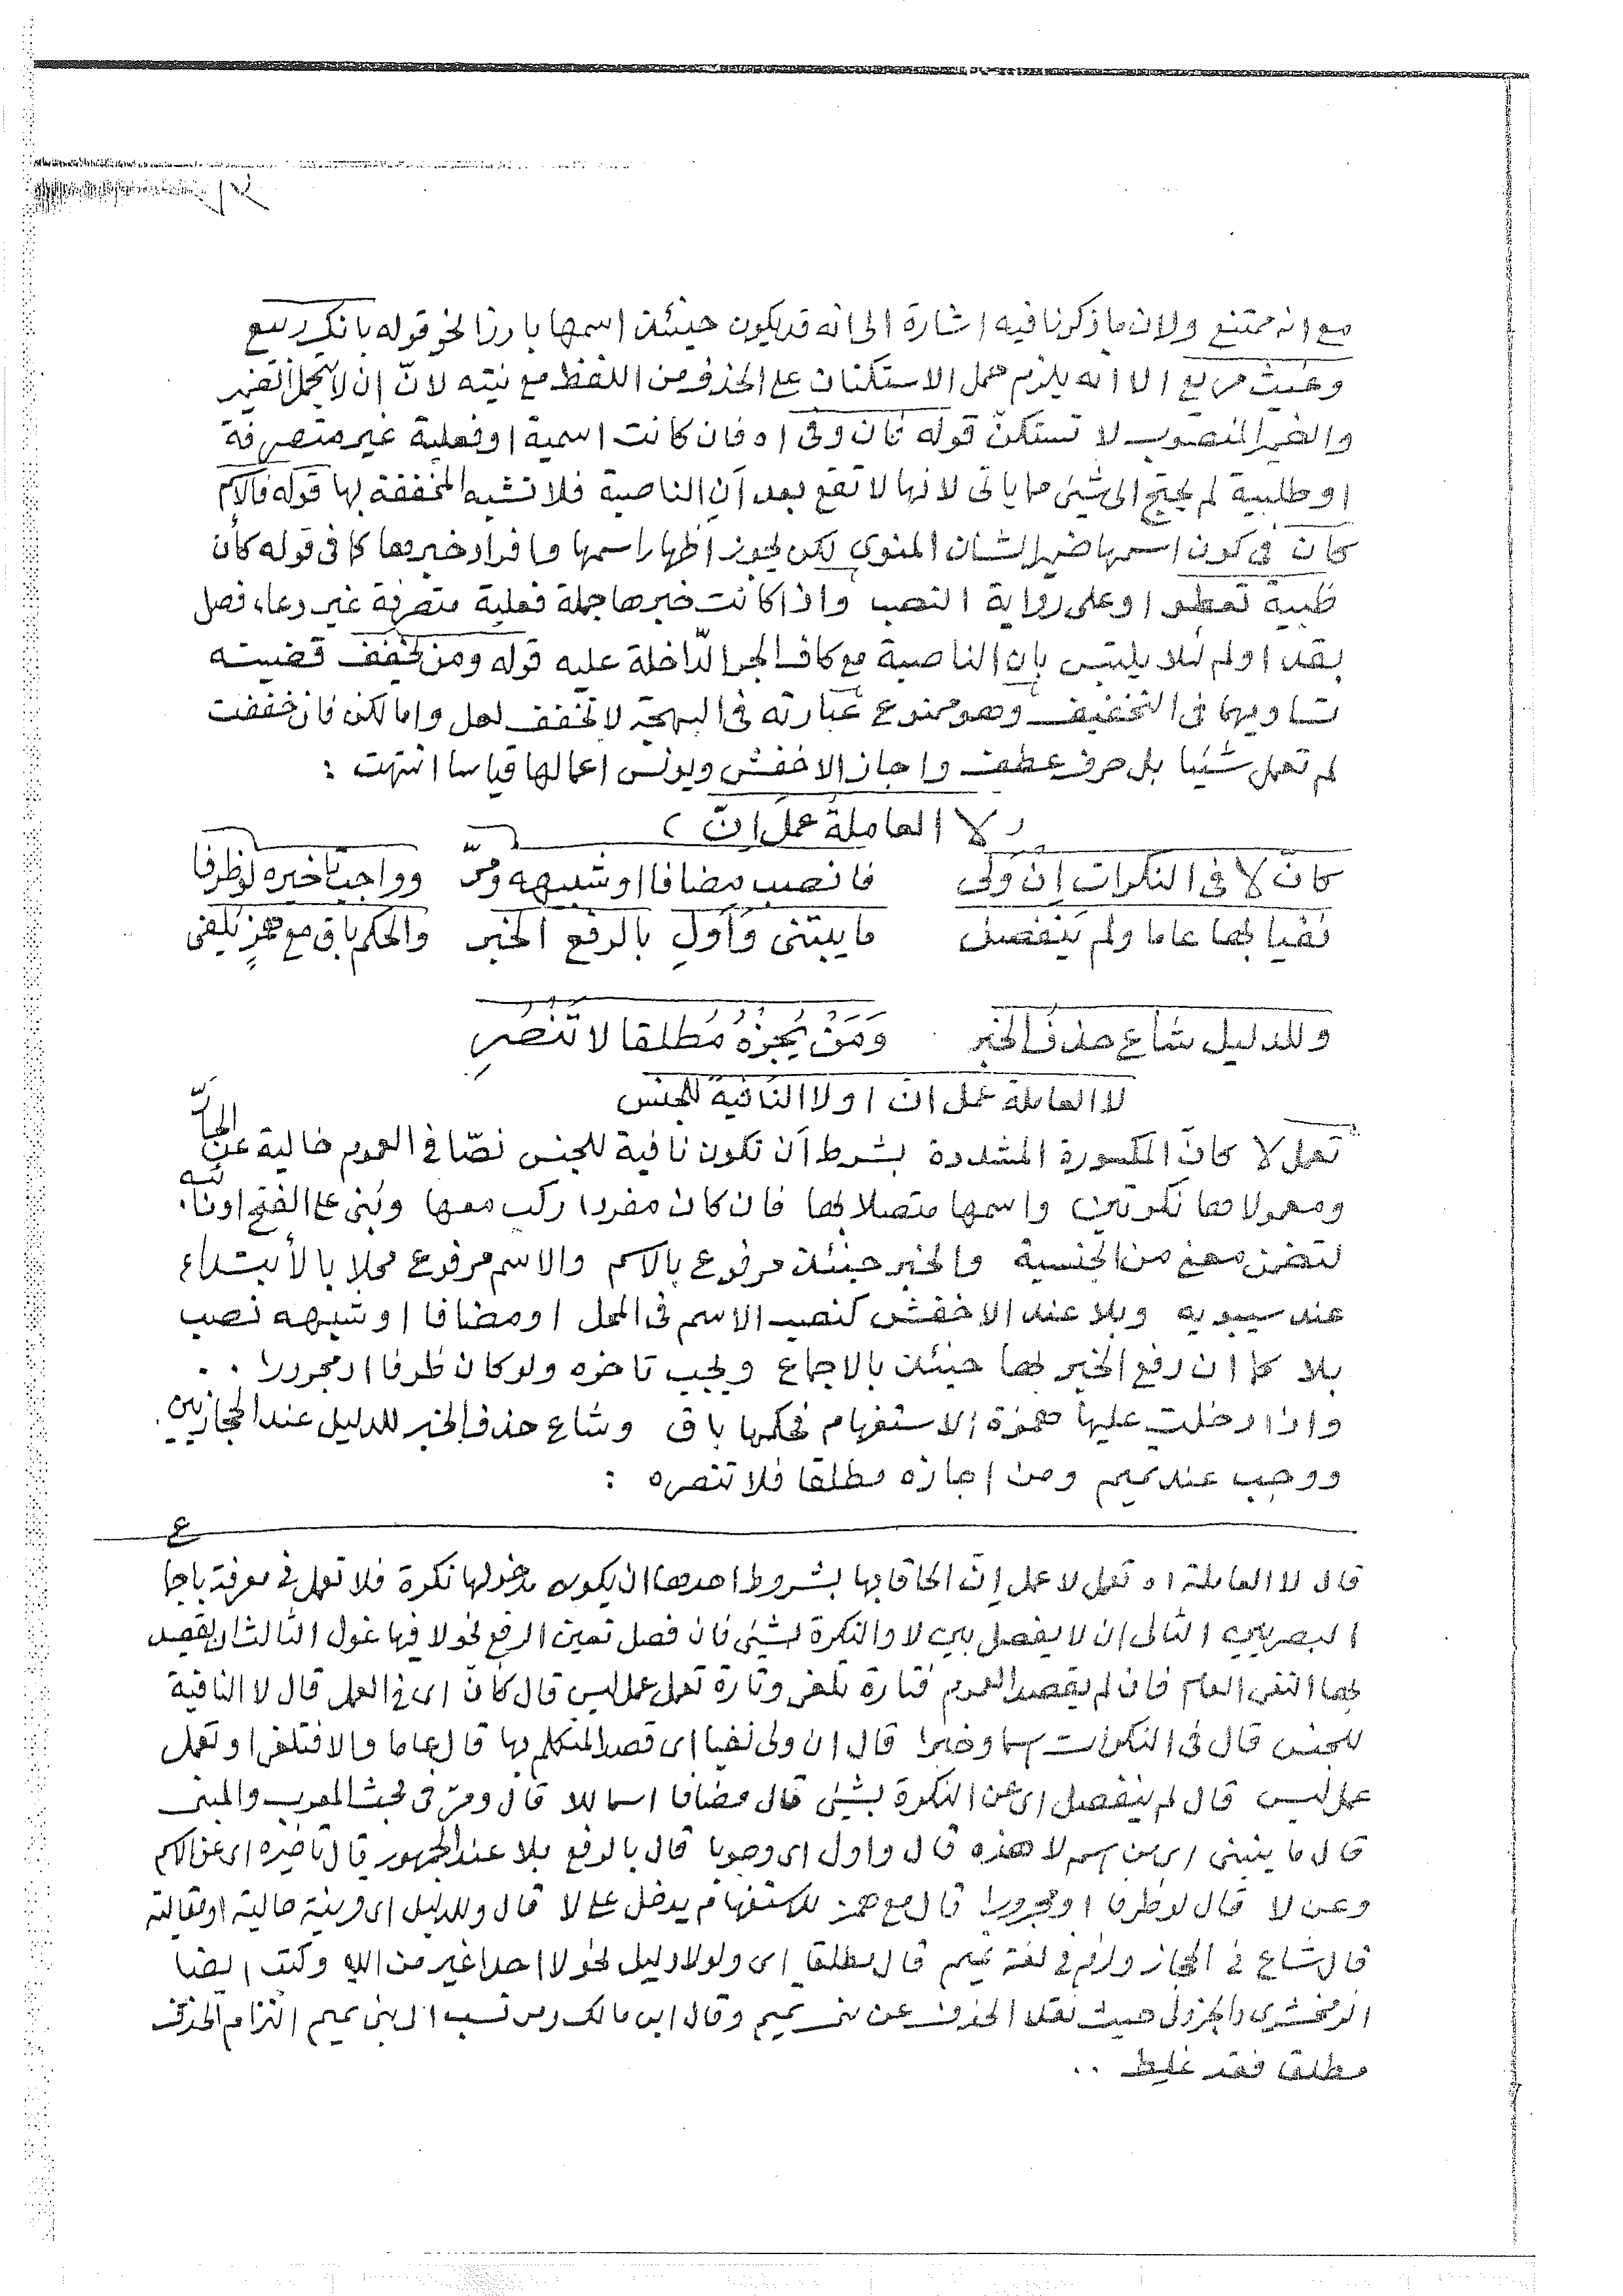 مع انه ممتنع ولان ما ذكرنا فيه اشارة الى انه قد يكون حينئذ اسمها بارزا نحو قوله بانك ربيع
وغيث مريع الا انه يلزم حمل الاستكنان على الحذف من اللفظ مع نيته لانّ ان لا يتحمل الضمير
والضمير المنصوب لا تستكنّ قوله كان وفى اه فان كانت اسمية او فعلية غير متصرفة
او طلبية لم يحتج الى شيئ مما ياتى لانها لا تقع بعد أن الناصبة فلا تشبه المخففة بها قوله فالاسم
كان فى كون اسمها ضمير الشان المنوى لكن يجوز اظهار اسمها وافراد خبرها كما فى قوله كأن
ظبية تعطو او على رواية النصب واذا كانت خبرها جملة فعلية متصرفة غير دعاء فصل
بقد او لم لئلا يلتبس بان الناصبة مع كاف الجر الدّاخلة عليه قوله ومن يخفف قضيته
تساويهما فى التخفيف وهو ممنوع عبارته فى البهجة لا تخفف لعل واما لكن فان خففت
لم تعمل شيئا بل حرف عطف واجاز الاخفش ويونس اعمالها قياسا انتهت :
( لا العاملة عمل إنّ )
كانّ لا فى النكرات إن ولى فانصب مضافا او شبيهه ومرّ وواجب تاخيره لو ظرفا
نفيا بها عاما ولم ينفصل ما يبتنى وأول بالرفع الخبر والحكم باق مع همز تلفى
وللدليل شاع حذف الخبر وَمَنْ يُجِزْهُ مُطلقا لا تَنْصُرِ
لا العاملة عمل انّ او لا النافية للجنس
تعمل لا كانّ المكسورة المشددة بشرط أن تكون نافية للجنس نصّا فى العموم خالية عن الجارّ
ومعمولاها نكرتين واسمها متصلا بها فان كان مفردا ركب معها وبُنى على الفتح او نائبه
لتضمن معنى من الجنسية والخبر حينئذ مرفوع بالاسم والاسم مرفوع محلا بالأبتداء
عند سيبويه وبلا عند الاخفش كنصب الاسم فى المحل او مضافا او شبيهه نصب
بلا كما ان رفع الخبر بها حينئذ بالاجماع ويجب تاخره ولو كان ظرفا او مجرورا . .
واذا دخلت عليها همزة الاستفهام فحكمها باق وشاع حذف الخبر للدليل عند الحجازيين
ووجب عند تميم ومن اجازه مطلقا فلا تنصره :
ع
قال لا العاملة اه تعمل لا عمل إنّ الحاقا بها بشروط احدها ان يكون مدخولها نكرة فلا تعمل فى معرفة باجماع
البصريين الثانى ان لا يفصل بين لا والنكرة بشيئ فان فصل تعين الرفع نحو لا فيها غول الثالث ان يقصد
بها النفى العام فان لم يقصد العموم فتارة تلغى وتارة تعمل عمل ليس قال كانّ اى فى العمل قال لا النافية
للجنس قال فى النكرات اسما وخبرا قال ان ولى نفيا اى قصد المتكلم بها قال عاما والا فتلغى او تعمل
عمل ليس قال لم ينفصل اى عن النكرة بشيئ قال مضافا اسما للا قال ومرّ فى بحث المعرب والمبنى
قال ما يبتنى اى من اسم لا هذه قال واول اى وجوبا قال بالرفع بلا عند الجمهور قال تاخيره اى عن الاسم
وعن لا قال لو ظرفا او مجرورا قال مع همز للاستفهام يدخل على لا قال وللدليل اى قرينة حالية او مقالية
قال شاع فى الحجاز ولزم فى لغة تميم قال مطلقا اى ولو لا دليل نحو لا احد اغير من الله وكتب ايضا
الزمخشرى والجزولى حيث نقلا الحذف عن بنى تميم وقال ابن مالك ومن نسب الى بنى تميم التزام الحذف
مطلقا فقد غلط . .